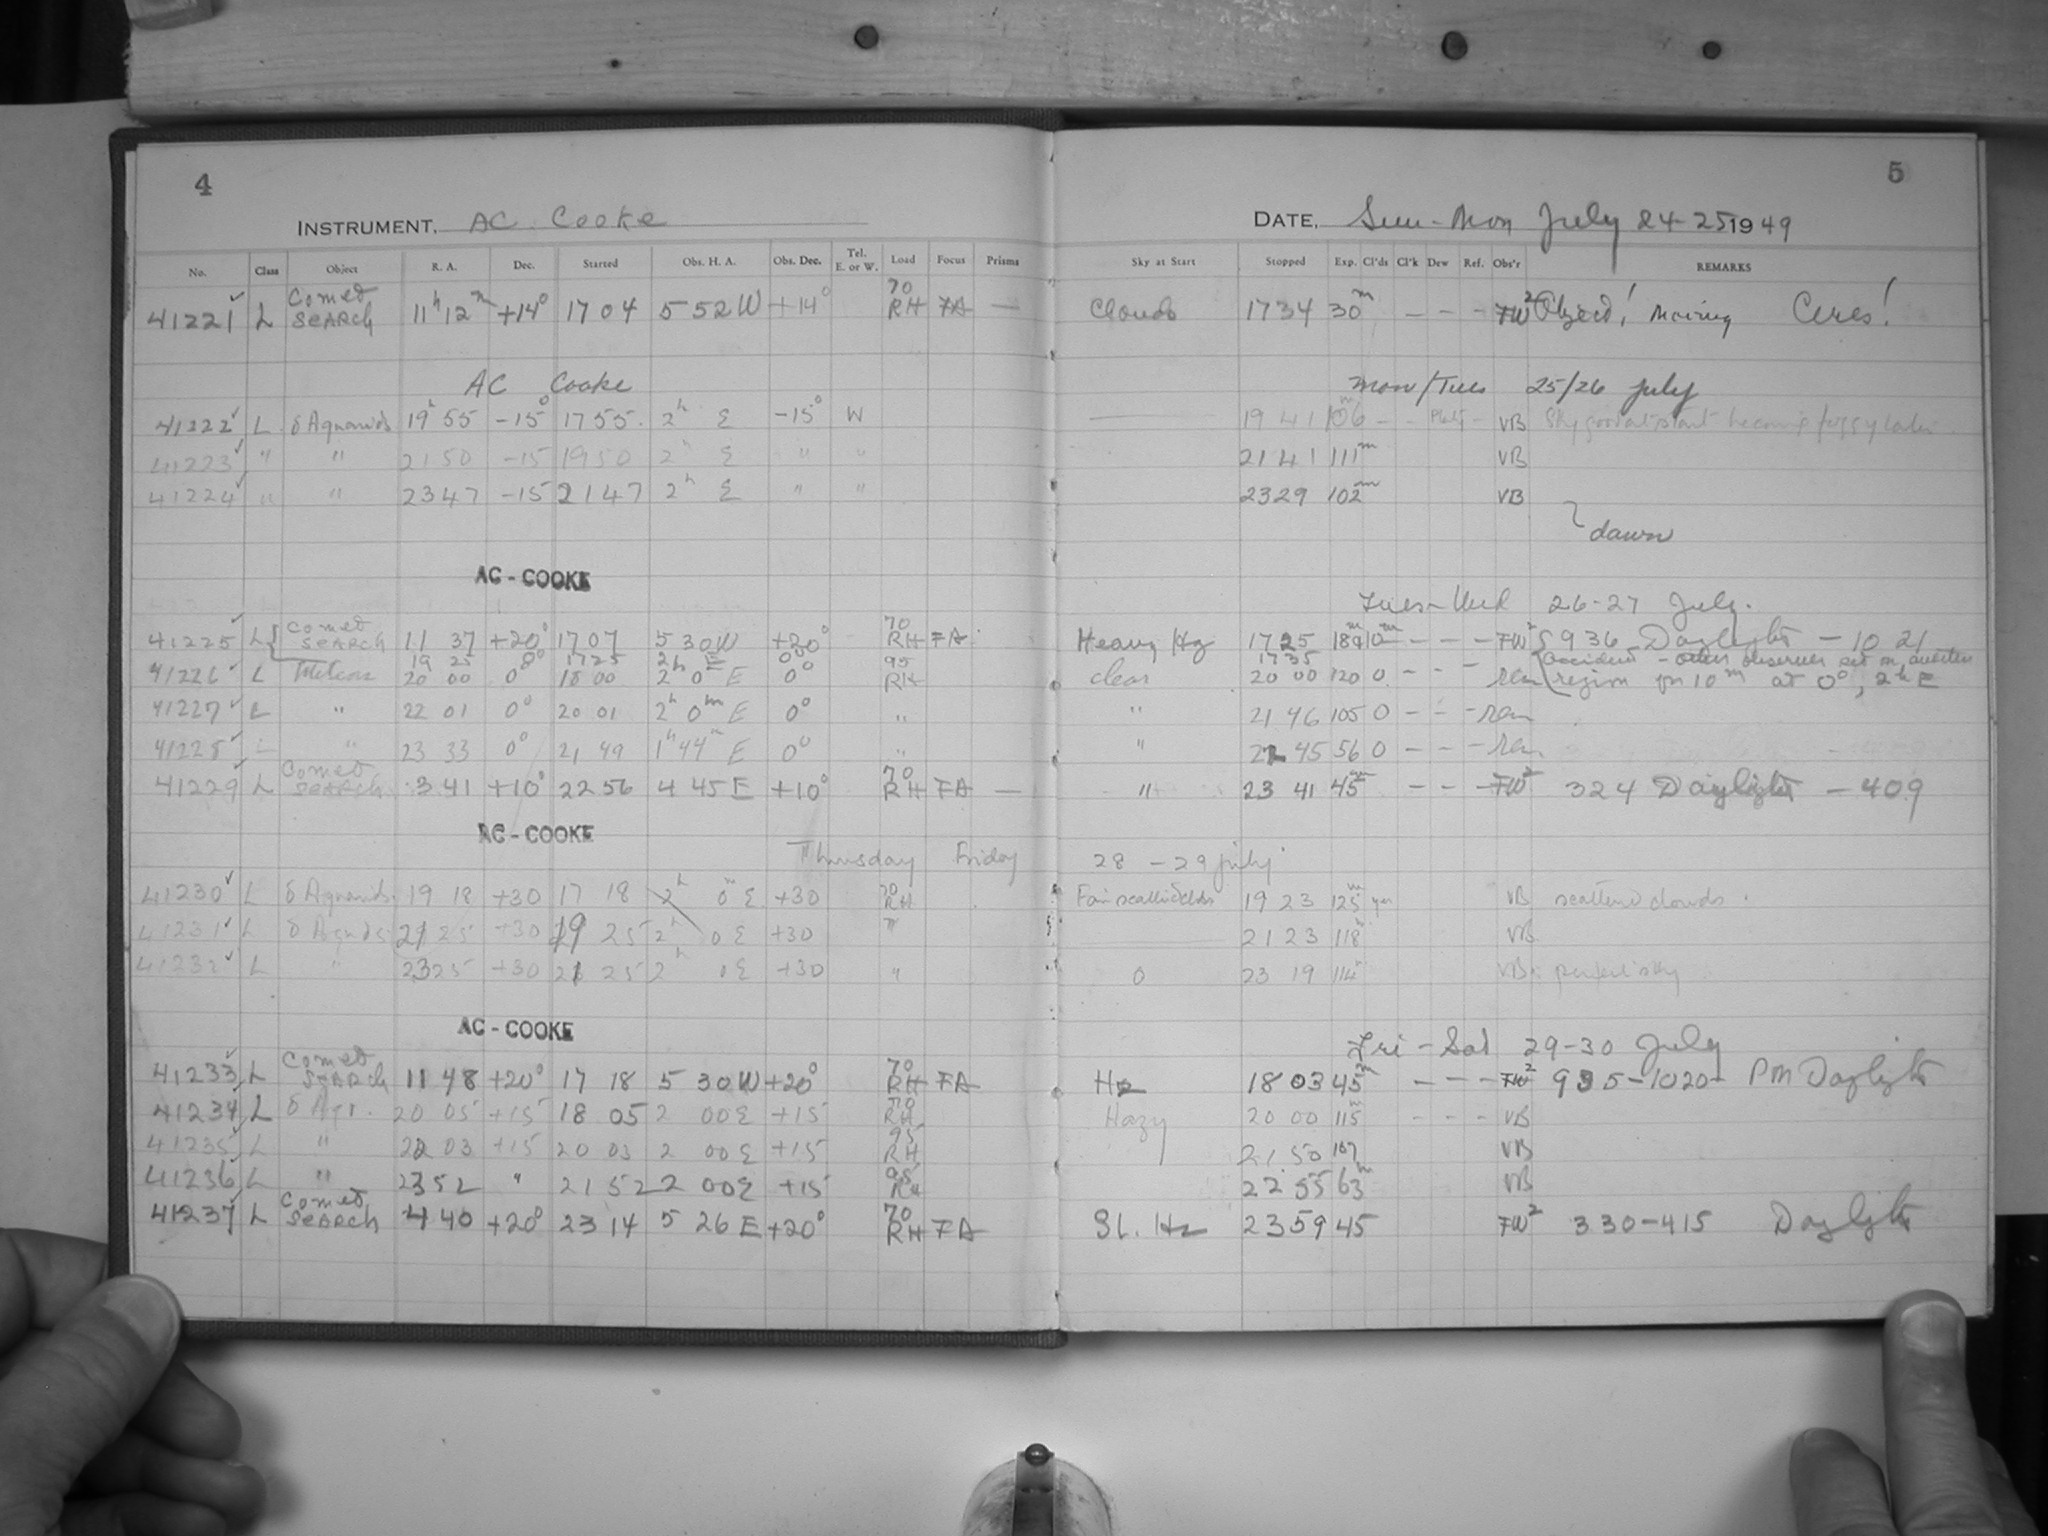 4
5
INSTRUMENT. AC Cooke DATE. Sun-Mon July 24-25 1949
No. Class Object R. A. Dec. Started Obs. H. A. Obs. Dec. Tel. E. or W. Load Focus Prisms Sky at Start Stopped Exp. Cl'ds Cl'k Dew Ref. Obs'r REMARKS
41221 ✓ L Comet SEARCH 11h 12m +14° 17 04 5 52 W +14° 70 RH FA — Clouds 1734 30m — — - FW2 Object! moving Ceres!
AC Cooke Mon/Tues 25/26 July
41222 ✓ L δ Aquarids 19h 55 -15° 1755 2h E -15° W — 19 41 106m - - - VB Sky good at start becoming foggy later
41223 ✓ " " 21 50 -15 1950 2h E " " 2141 111m VB
41224 ✓ " " 2347 -15 2147 2h E " " 2329 102m VB
dawn
AC - COOKE
Tues-Wed 26-27 July.
41225 ✓ L Comet SEARCH 11 37 +20° 1707 5 30W +20° 70 RH FA Heavy Hz 1725 18m — — - FW2 5 936 Daylight — 10 21
19 25 0° 1725 2h E 0° 1735 10m accident - other observer set on another
41226 ✓ L Meteor 20 00 0° 18 00 2h 0 E 0° 95 RH clear 20 00 120 0 - - - rem region for 10m at 0°, 2h E
41227 ✓ L " 22 01 0° 20 01 2h 0m E 0° " " 21 46 105 0 - - - rem
41228 ✓ L " 23 33 0° 21 49 1h 44m E 0° " " 22 45 56 0 - - - rem
41229 ✓ L Comet SEARCH 3 41 +10° 2256 4 45 E +10° 70 RH FA — " 23 41 45m - - - FW2 324 Daylight — 409
AC - COOKE
Thursday Friday 28 - 29 july
41230 ✓ L δ Aquarids 19 18 +30 17 18 2h 0m E +30 70 RH Fair scattered clds 19 23 125m yes VB scattered clouds.
41231 ✓ L δ Aqrds 21 25 +30 19 25 2h 0 E +30 " 2123 118m VB
41232 ✓ L " 2325 +30 21 25 2h 0 E +30 " 0 23 19 114m VB perfect sky
AC - COOKE
Fri - Sat 29-30 July
41233 ✓ L Comet SEARCH 11 48 +20° 17 18 5 30 W +20° 70 RH FA Hz 18 03 45m - - - FW2 935-1020 PM Daylight
41234 ✓ L δ Aqr. 20 05 +15 18 05 2 00 E +15 70 RH Hazy 20 00 115m - - - VB
41235 ✓ L " 22 03 +15 20 03 2 00 E +15 95 RH 21 50 107 VB
41236 ✓ L " 2352 " 21 52 2 00 E +15 95 RH 22 55 63m VB
41237 ✓ L Comet SEARCH 4 40 +20° 23 14 5 26 E +20° 70 RH FA Sl. Hz 2359 45 FW2 330-415 Daylight